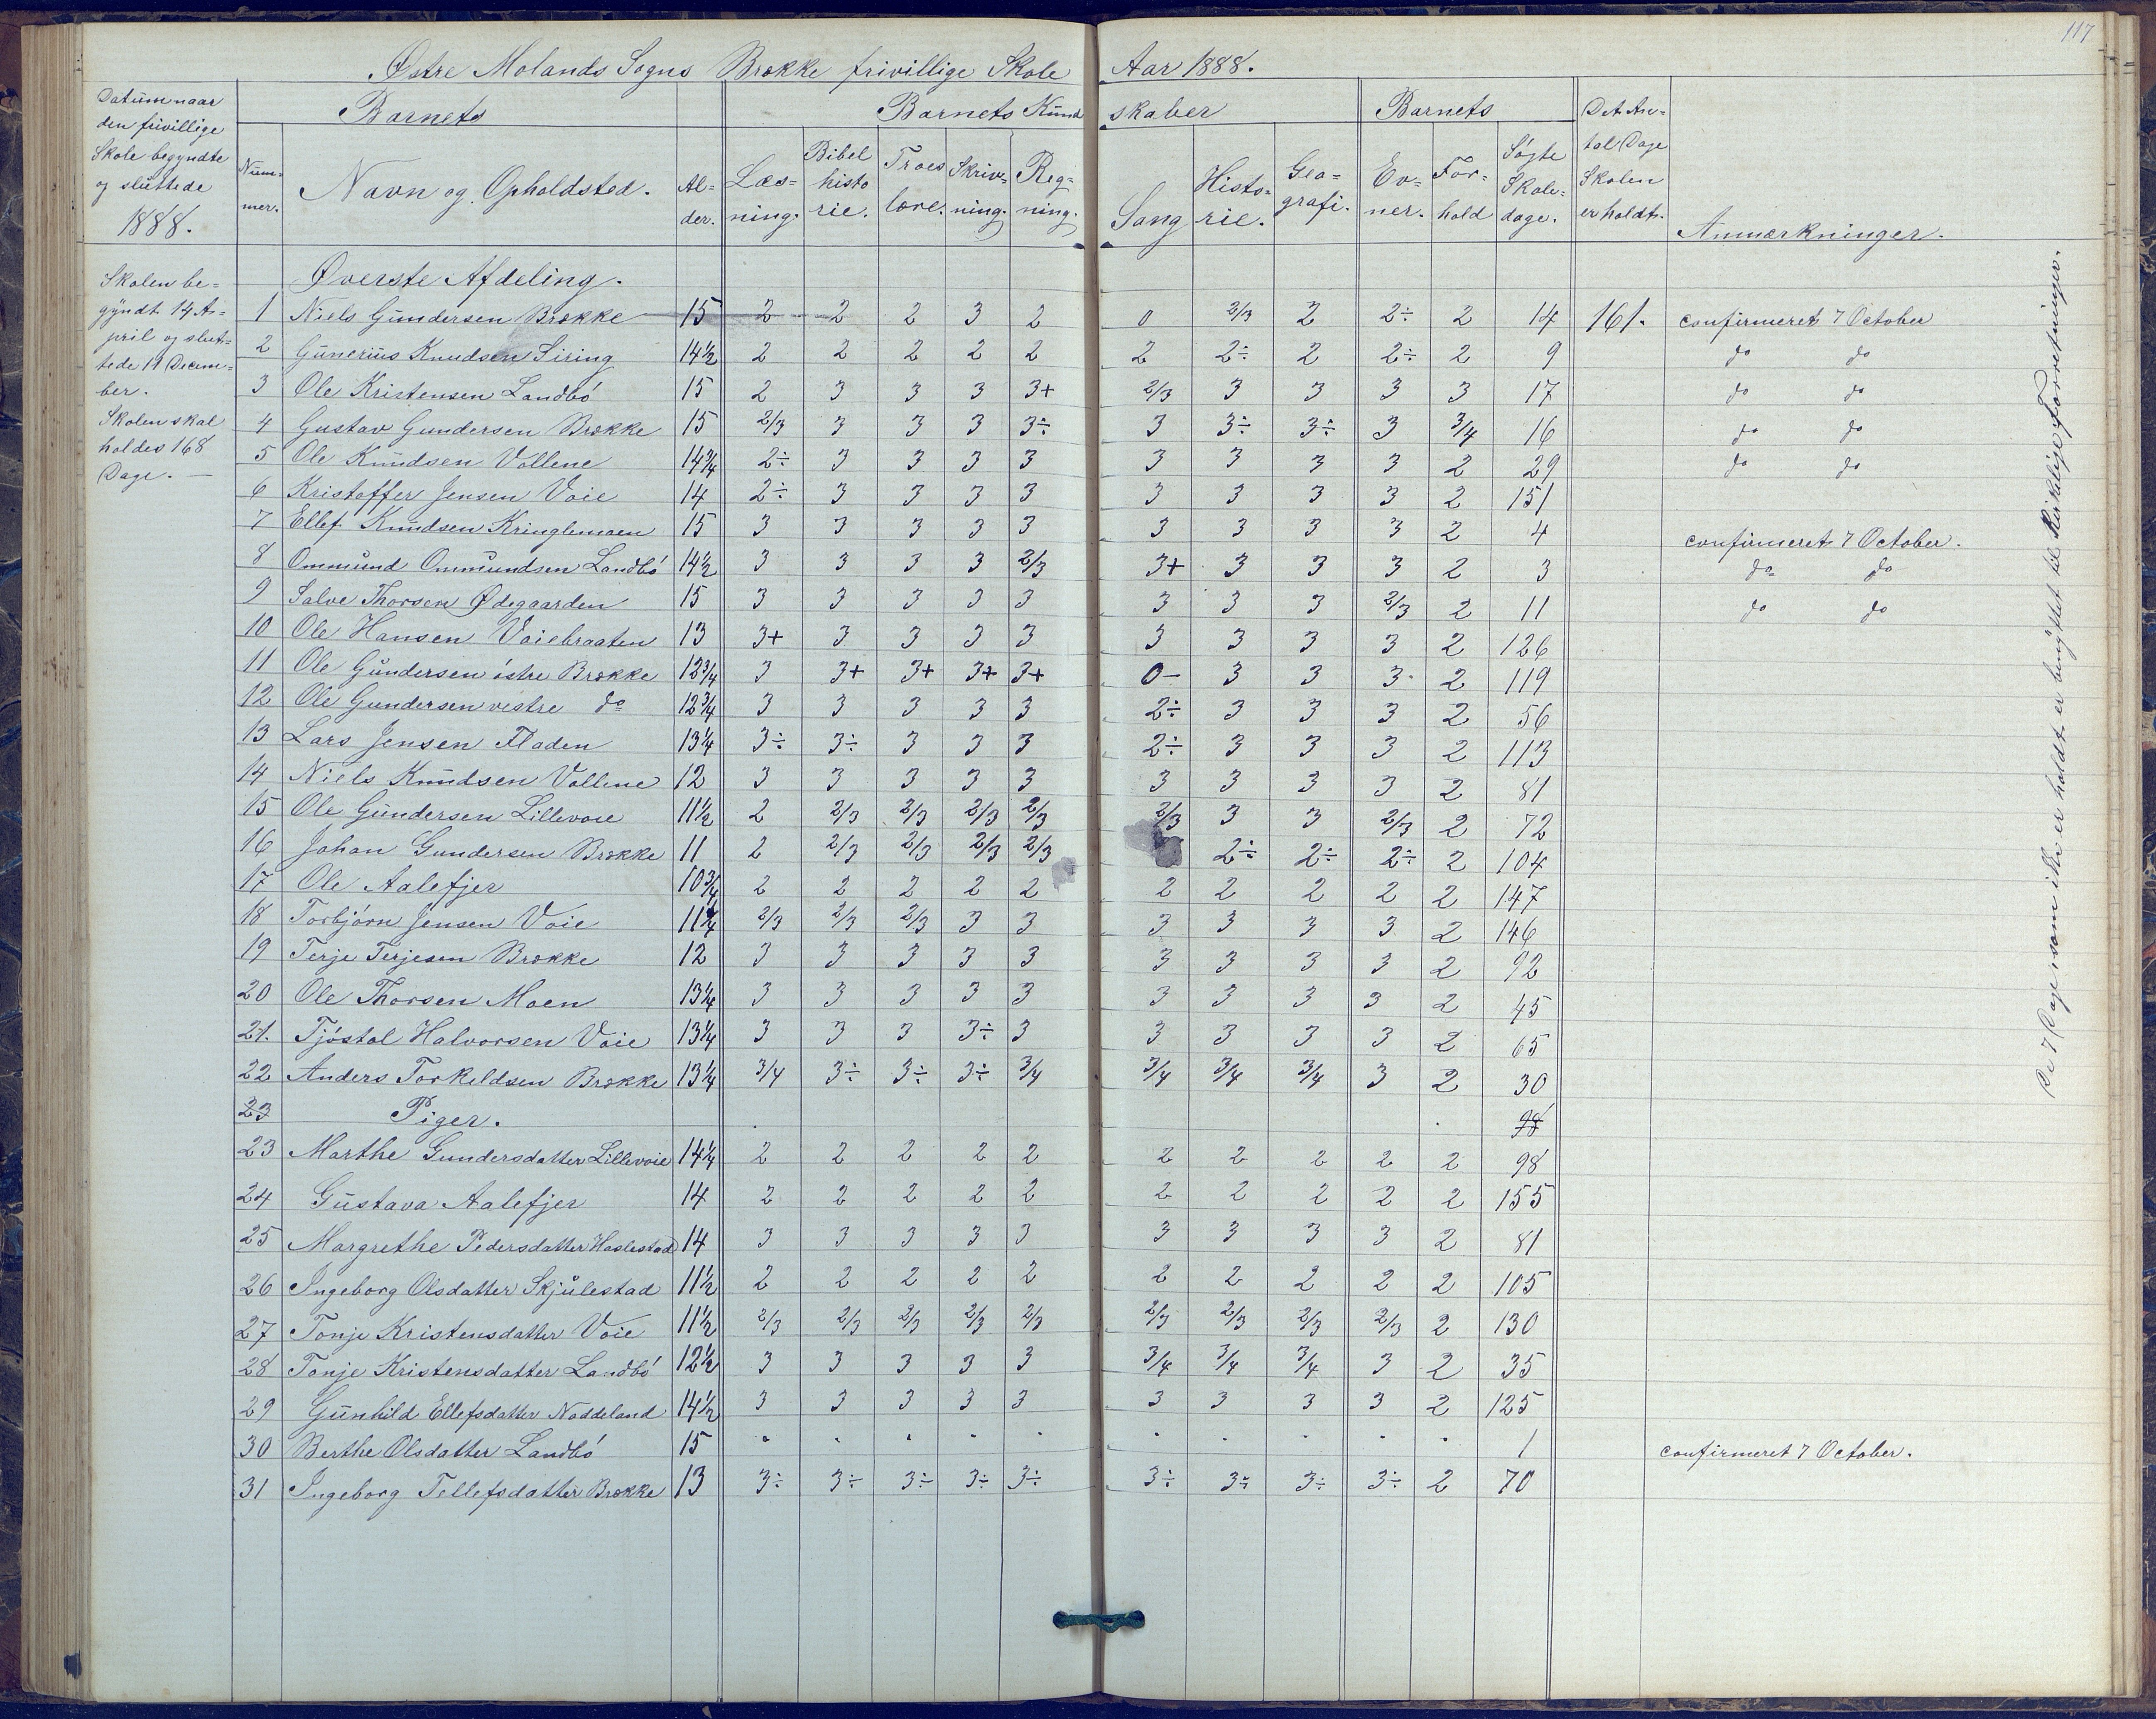 117
Østre Molands Sogns Brække frivillige Skole Aar 1888.
Datum naar den frivillige Skole begyndte og sluttede 1888.
Barnets
Barnets Kundskaber
Barnets
Det Antal Dage Skolen er holdt.
Num-mer. Navn og Opholdsted. Al-der. Læs-ning. Bibel histo rie. Troes lære. Skriv-ning. Reg-ning. Sang Histo-rie. Geo-grafi. Ev-ner. For-hold Søgte Skole-dage. Anmærkninger.
Skolen be=
gyndt 14 A=
pril og slut=
tede 11 Decem=
ber.
Skolen skal
holdes 168
Dage. —
Øverste Afdeling.
1 Niels Gundersen Brække 15 2 2 2 3 2 0 2/3 2 2÷ 2 14 161. confirmeret 7 October
2 Gunerius Knudsen Siring 14½ 2 2 2 2 2 2 2÷ 2 2÷ 2 9 do do
3 Ole Kristensen Landbö 15 2 3 3 3 3+ 2/3 3 3 3 3 17 do do
4 Gustav Gundersen Brække 15 2/3 3 3 3 3÷ 3 3÷ 3÷ 3 3/4 16 do do
5 Ole Knudsen Vollene 14¾ 2÷ 3 3 3 3 3 3 3 3 2 29 do do
6 Kristoffer Jensen Voie 14 2÷ 3 3 3 3 3 3 3 3 2 151
7 Ellef Knudsen Kringlemoen 15 3 3 3 3 3 3 3 3 3 2 4 confirmeret 7 October.
8 Ommund Ommundsen Landbö 14½ 3 3 3 3 2/3 3+ 3 3 3 2 3 do do
9 Salve Thorsen Ødegaarden 15 3 3 3 3 3 3 3 3 2/3 2 11 do do
10 Ole Hansen Voiebraaten 13 3+ 3 3 3 3 3 3 3 3 2 126
11 Ole Gundersen östre Brække 12¾ 3 3+ 3+ 3+ 3+ 0- 3 3 3 2 119
12 Ole Gundersen vestre do 12¾ 3 3 3 3 3 2÷ 3 3 3 2 56
13 Lars Jensen Fladen 13¼ 3÷ 3÷ 3 3 3 2÷ 3 3 3 2 113
14 Niels Knudsen Vollene 12 3 3 3 3 3 3 3 3 3 2 81
15 Ole Gundersen Lillevoie 11½ 2 2/3 2/3 2/3 2/3 2/3 3 3 2/3 2 72
16 Johan Gundersen Brække 11 2 2/3 2/3 2/3 2/3 2÷ 2÷ 2÷ 2 104
17 Ole Aalefjer 10¾ 2 2 2 2 2 2 2 2 2 2 147
18 Torbjörn Jensen Voie 11¼ 2/3 2/3 2/3 3 3 3 3 3 3 2 146
19 Terje Terjesen Brække 12 3 3 3 3 3 3 3 3 3 2 92
20 Ole Thorsen Moen 13¼ 3 3 3 3 3 3 3 3 3 2 45
21. Tjöstol Halvorsen Voie 13¼ 3 3 3 3÷ 3 3 3 3 3 2 65
22 Anders Torkildsen Brække 13¼ 3/4 3÷ 3÷ 3÷ 3/4 3/4 3/4 3/4 3 2 30
23 Piger. 98
23 Marthe Gundersdatter Lillevoie 14¼ 2 2 2 2 2 2 2 2 2 2 98
24 Gustava Aalefjer 14 2 2 2 2 2 2 2 2 2 2 155
25 Margrethe Pedersdatter Haslestad 14 3 3 3 3 3 3 3 3 3 2 81
26 Ingeborg Olsdatter Skjulestad 11½ 2 2 2 2 2 2 2 2 2 2 105
27 Tonje Kristensdatter Voie 11½ 2/3 2/3 2/3 2/3 2/3 2/3 2/3 2/3 2/3 2 130
28 Tonje Kristensdatter Landbö 12½ 3 3 3 3 3 3/4 3/4 3/4 3 2 35
29 Gunhild Ellefsdatter Naddeland 14½ 3 3 3 3 3 3 3 3 3 2 125
30 Berthe Olsdatter Landbö 15 - - - - - - - - - - 1 confirmeret 7 October.
31 Ingeborg Tellefsdatter Brække 13 3÷ 3÷ 3÷ 3÷ 3÷ 3÷ 3÷ 3÷ 3÷ 2 70
De 7 Dage som ikke er holdt er benyttet til Kirkelige Forretninger.